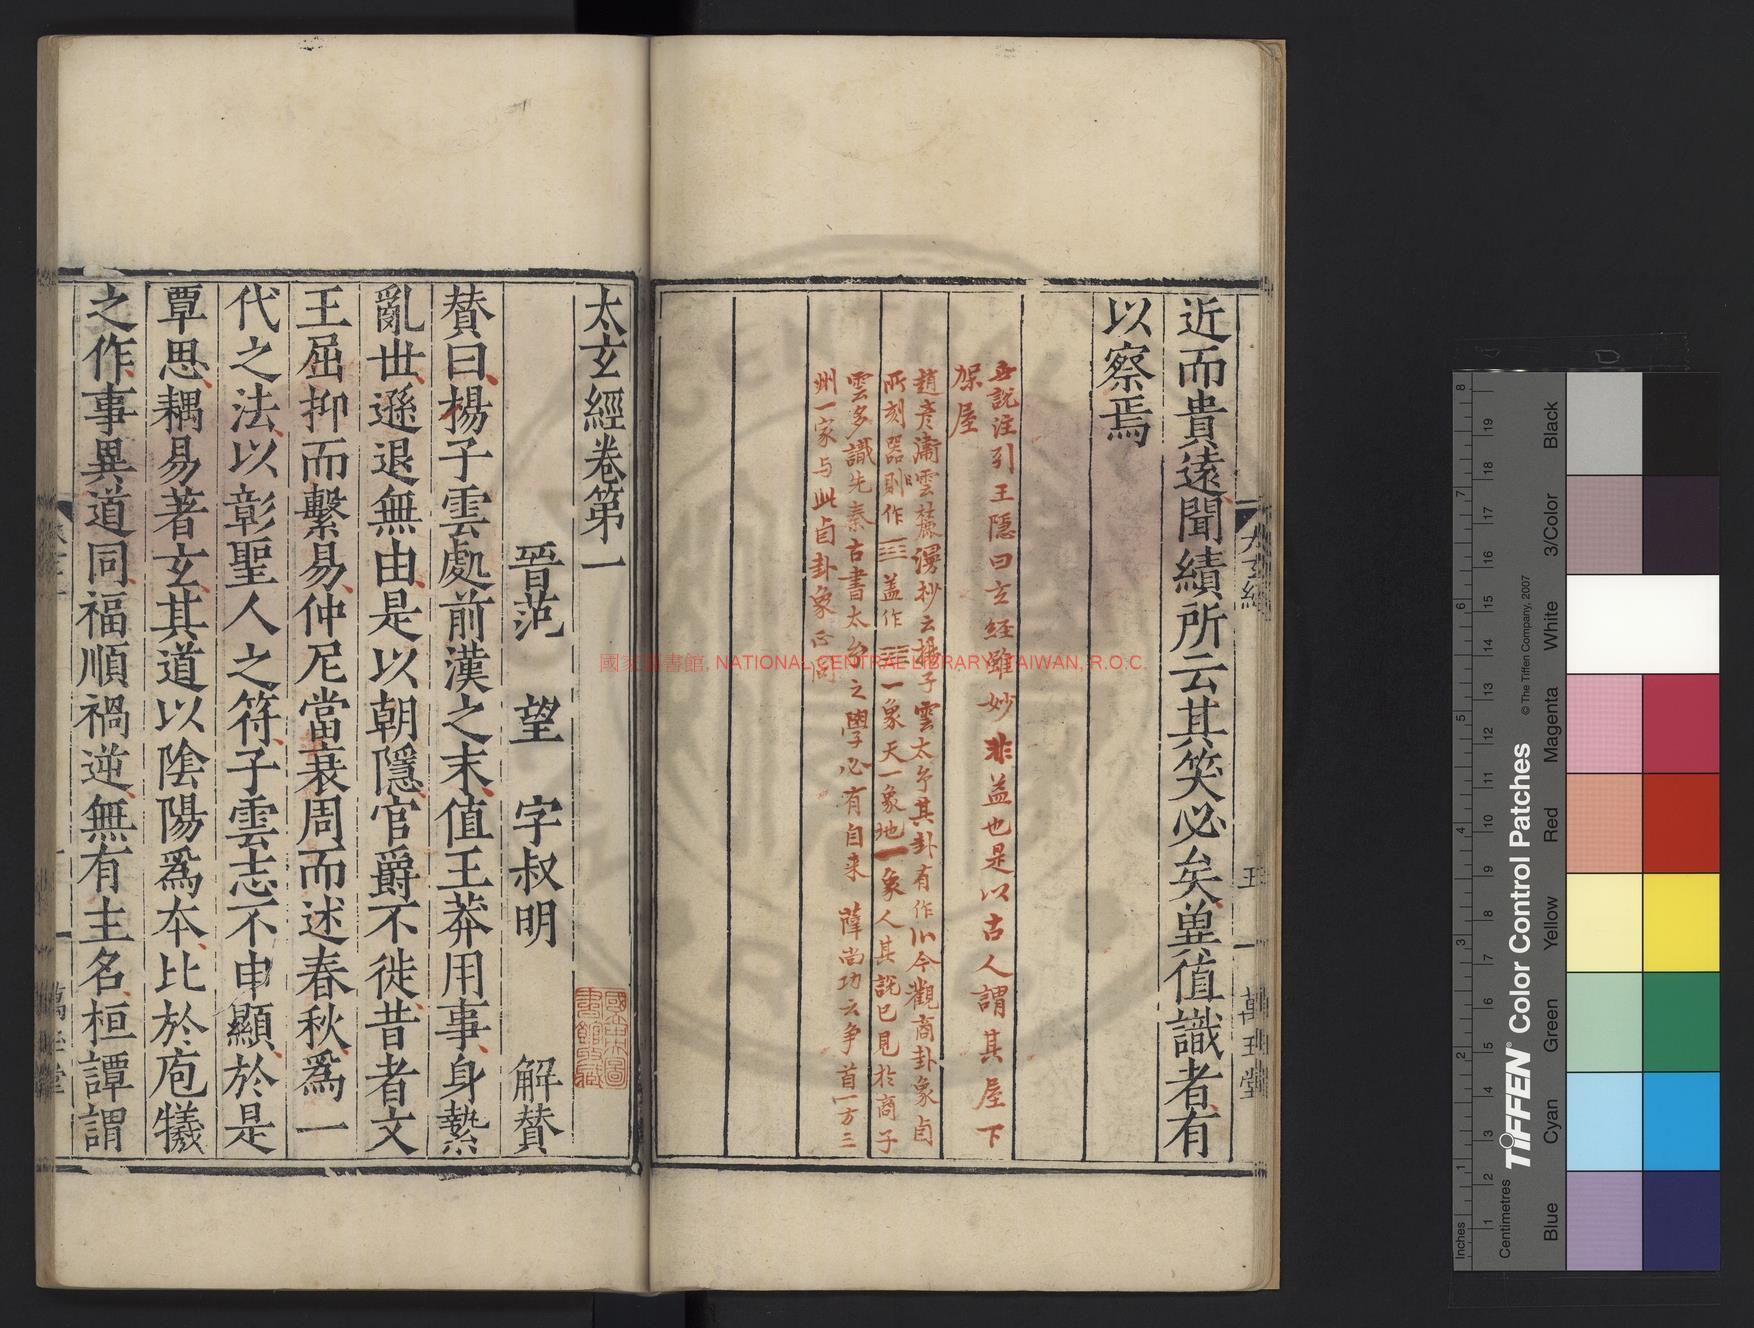 近而貴遠聞績所云其笑必矣異值識者有
以察焉
世說注引王隱曰玄經雖妙非益也是以古人謂其屋下
架屋
趙彥衛雲麓漫抄云揚子雲太玄其卦有作 今觀商卦象卣
所刻器則作 蓋作 一象天一象地一象人其說已見於商子
雲多識先秦古書太玄之學必有自來 薛尚功云爭首一方三
州一家与此卣卦象正同
太玄經
五
萬玉堂
太玄經卷第一
晉范 望 字叔明 解贊
贊曰揚子雲處前漢之末值王莽用事身縶
亂世遜退無由是以朝隱官爵不徙昔者文
王屈抑而繫易仲尼當衰周而述春秋爲一
代之法以彰聖人之符子雲志不申顯於是
覃思耦易著玄其道以陰陽爲本比於庖犧
之作事異道同福順禍逆無有主名桓譚謂
國家圖書館, NATIONAL CENTRAL LIBRARY, TAIWAN, R.O.C.
國立中央圖
書館收藏
Inches
Centimetres
TIFFEN® Color Control Patches
© The Tiffen Company, 2007
Blue
Cyan
Green
Yellow
Red
Magenta
White
3/Color
Black